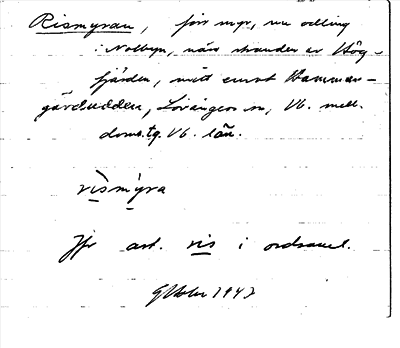 Rismyran, förr myr, nu odling
i Nolbyn, nära stranden av Hög-
fjärden, mitt emot Hamman-
gärdsudden, Lövångers sn, Vb. mell.
doms.tg. Vb. län.
rìsmýra
Jfr art. ris i ordsaml.
1943